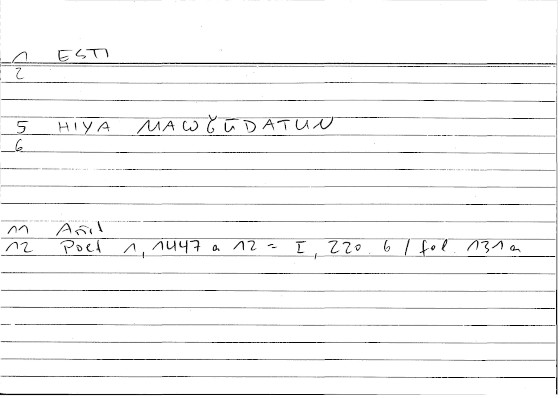 1 ESTI
2
5 HIYA MAWǦŪDATUN
6
11 Arist
12 Poet 1, 1447 a 12 = I, 220. 6 / fol. 131a